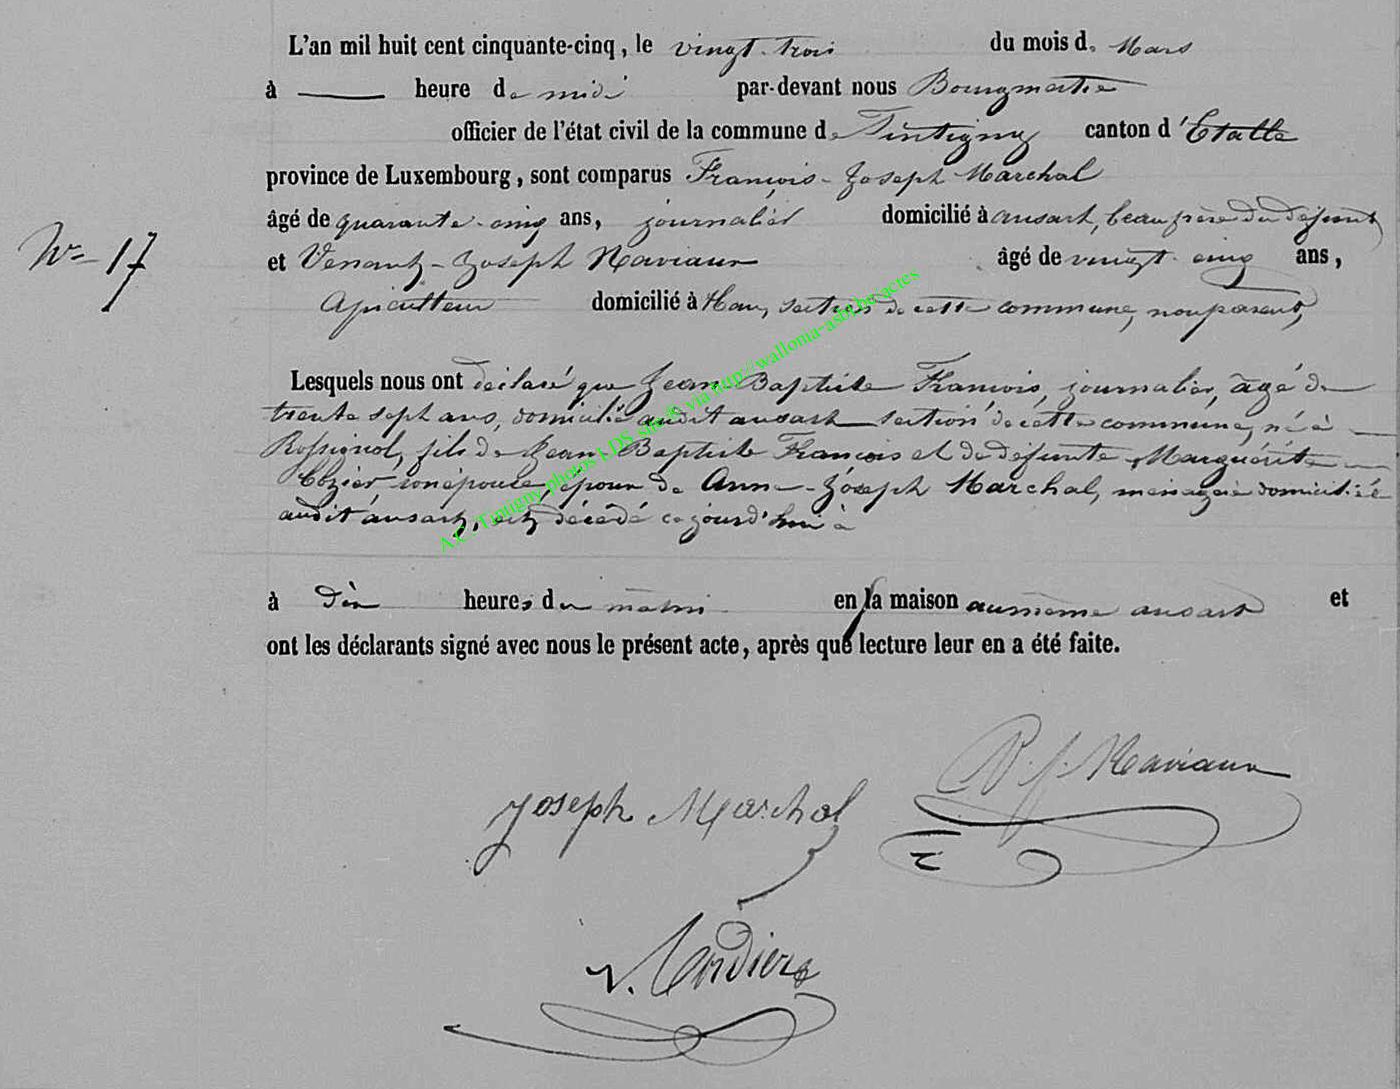 L'an mil huit cent cinquante-cinq, le vingt-trois du mois de Mars
à — heure de midi par-devant nous Bourgmestre
officier de l'état civil de la commune de Tintigny canton d'Etalle
province de Luxembourg, sont comparus François-Joseph Marchal
âgé de quarante-cinq ans, journalier domicilié à ansart, beau frère du défunt,
N° 17
et Venant-Joseph Naviaux âgé de vingt cinq ans,
Apiculteur domicilié à Han, section de cette commune, non parent,
Lesquels nous ont déclaré que Jean Baptiste François, journalier, âgé de
trente sept ans, domicilié audit ansart section de cette commune, né à
Rossignol, fils de Jean Baptiste François et de défunte Marguérite
son épouse, époux de Anne-Joseph Marchal, ménagère domiciliée
audit ansart, est décédé cejourd'hui à
à dix heures du matin en la maison au même ansart et
ont les déclarants signé avec nous le présent acte, après que lecture leur en a été faite.
J. Naviaux
Joseph Marchal
A.C. Tintigny photos LDS, site © via http://wallonia-asbl.be/actes